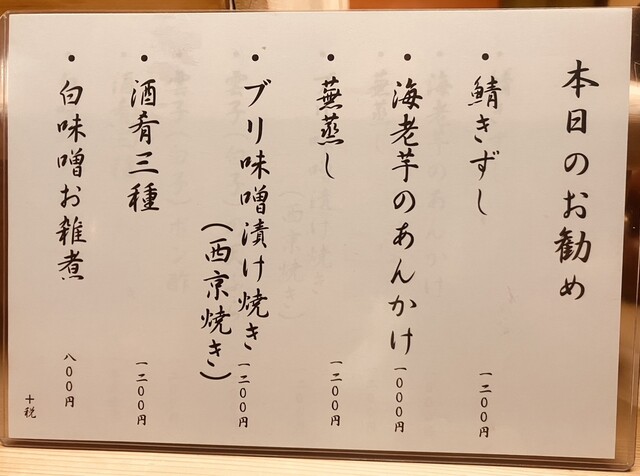 本日のお勧め
・鯖きずし 一二〇〇円
・海老芋のあんかけ 一〇〇〇円
・蕪蒸し 一二〇〇円
・ブリ味噌漬け焼き 一二〇〇円
(西京焼き)
・酒肴三種 一二〇〇円
・白味噌お雑煮 八〇〇円
十税